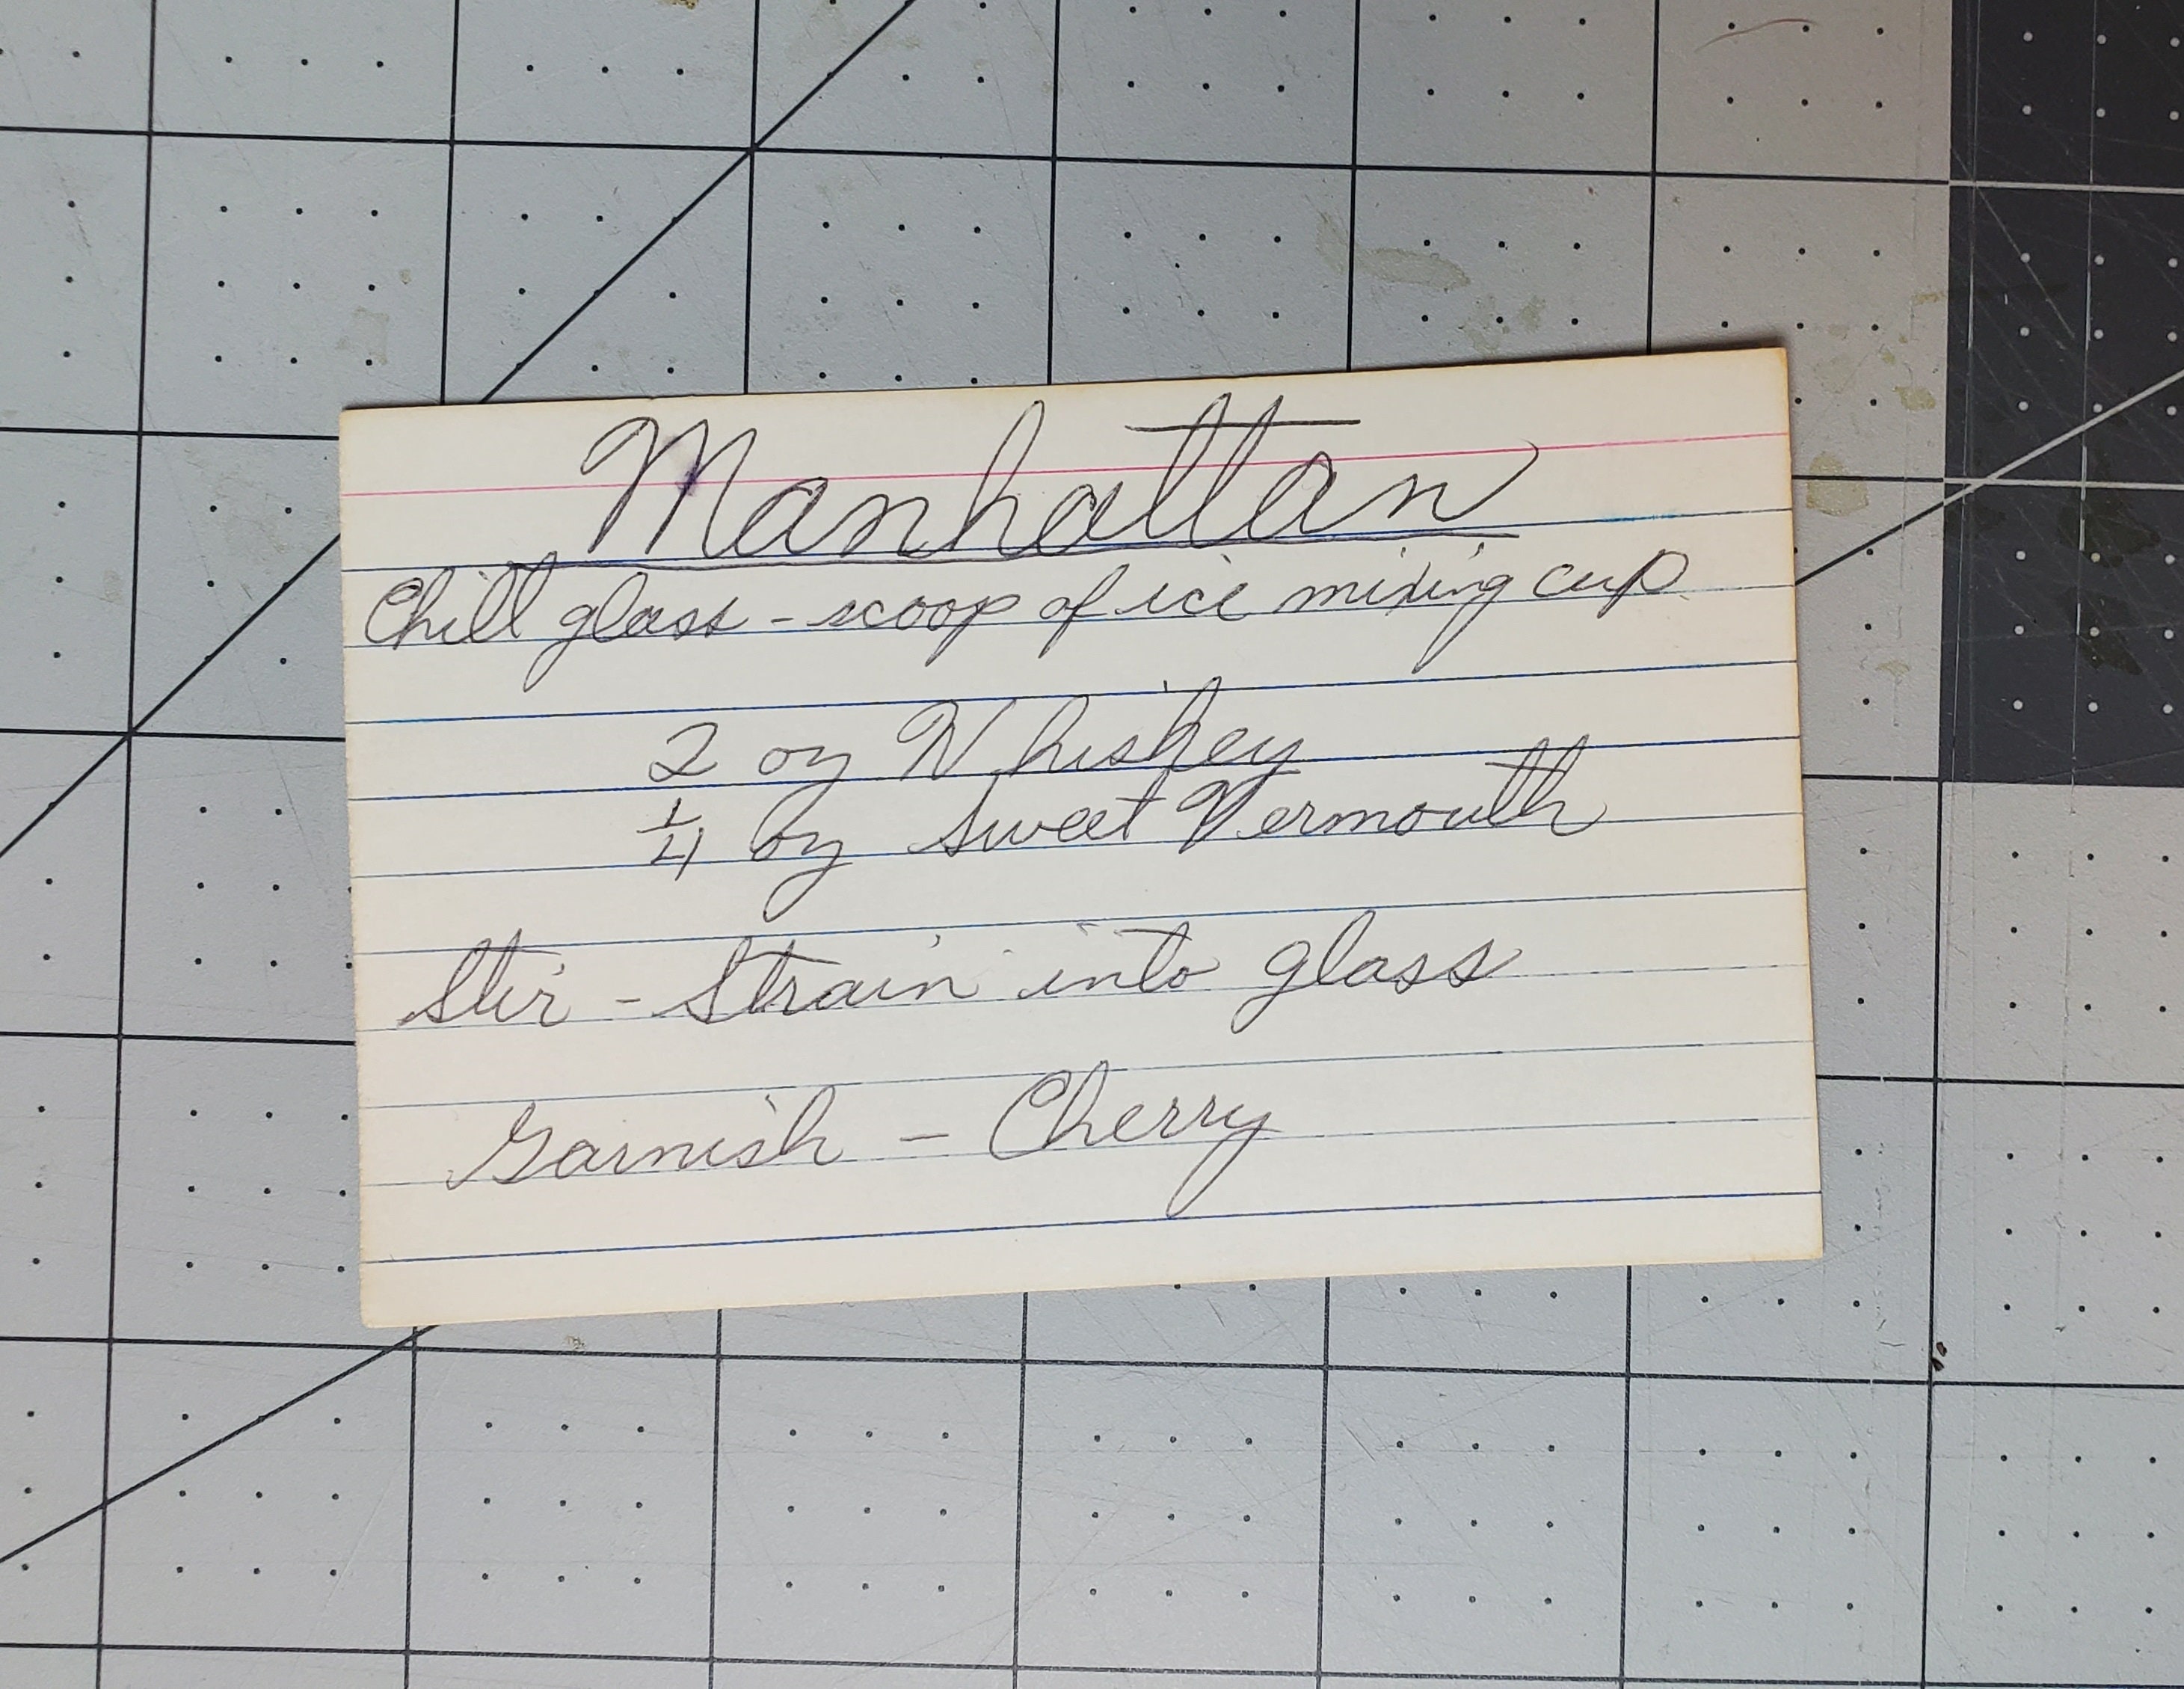 Manhattan
Chill glass - scoop of ice mixing cup
2 oz Whiskey
1/4 oz Sweet Vermouth
Stir - Strain into glass
Garnish - Cherry